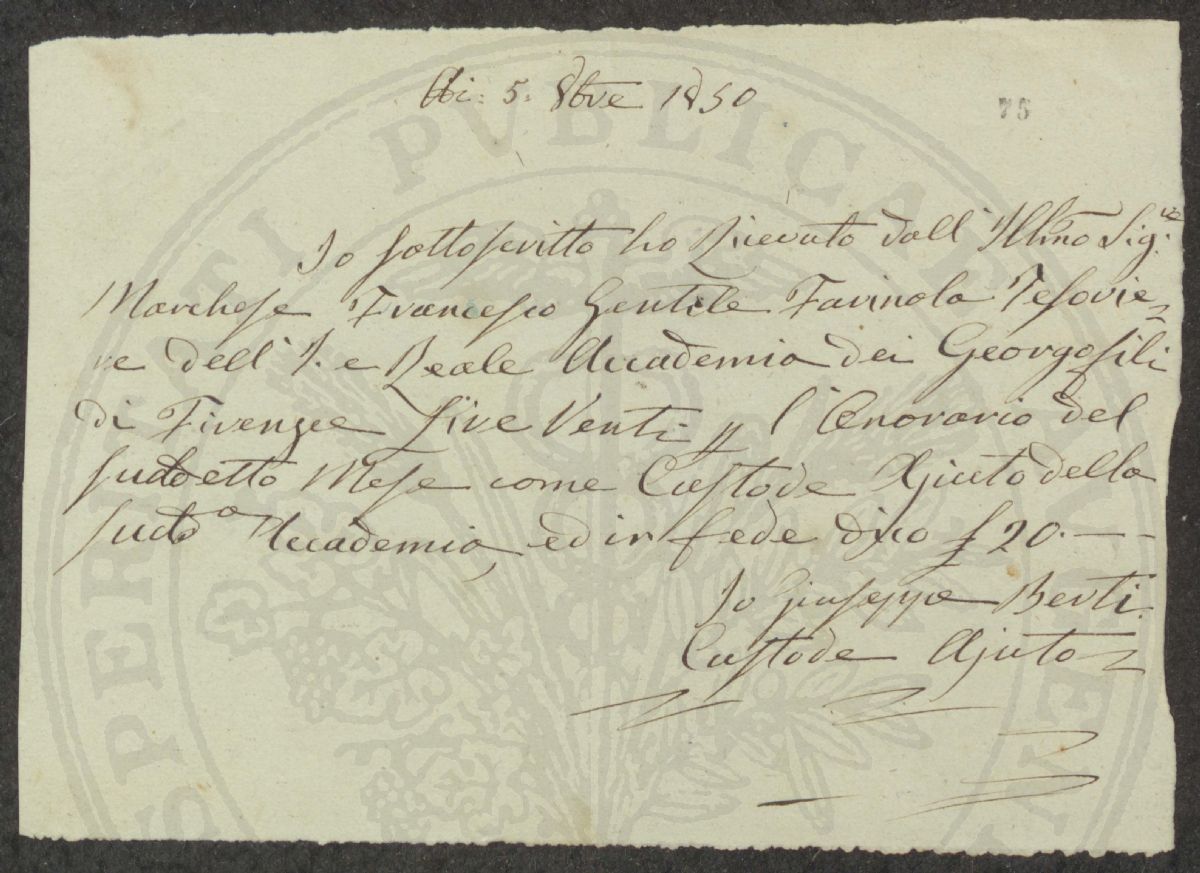 Adi: 5: 8bre 1850
75
Io sottoscritto ho Ricevuto dall' Illmo Sig.re
Marchese Francesco Gentile Farinola Tesorie=
re dell' I. e Reale Accademia dei Georgofili
di Firenze Lire Venti p l' Onorario del
suddetto Mese come Custode Ajuto della
sudda Accademia, ed in fede dico £ 20.--
Io Giuseppe Berti
Custode Ajuto